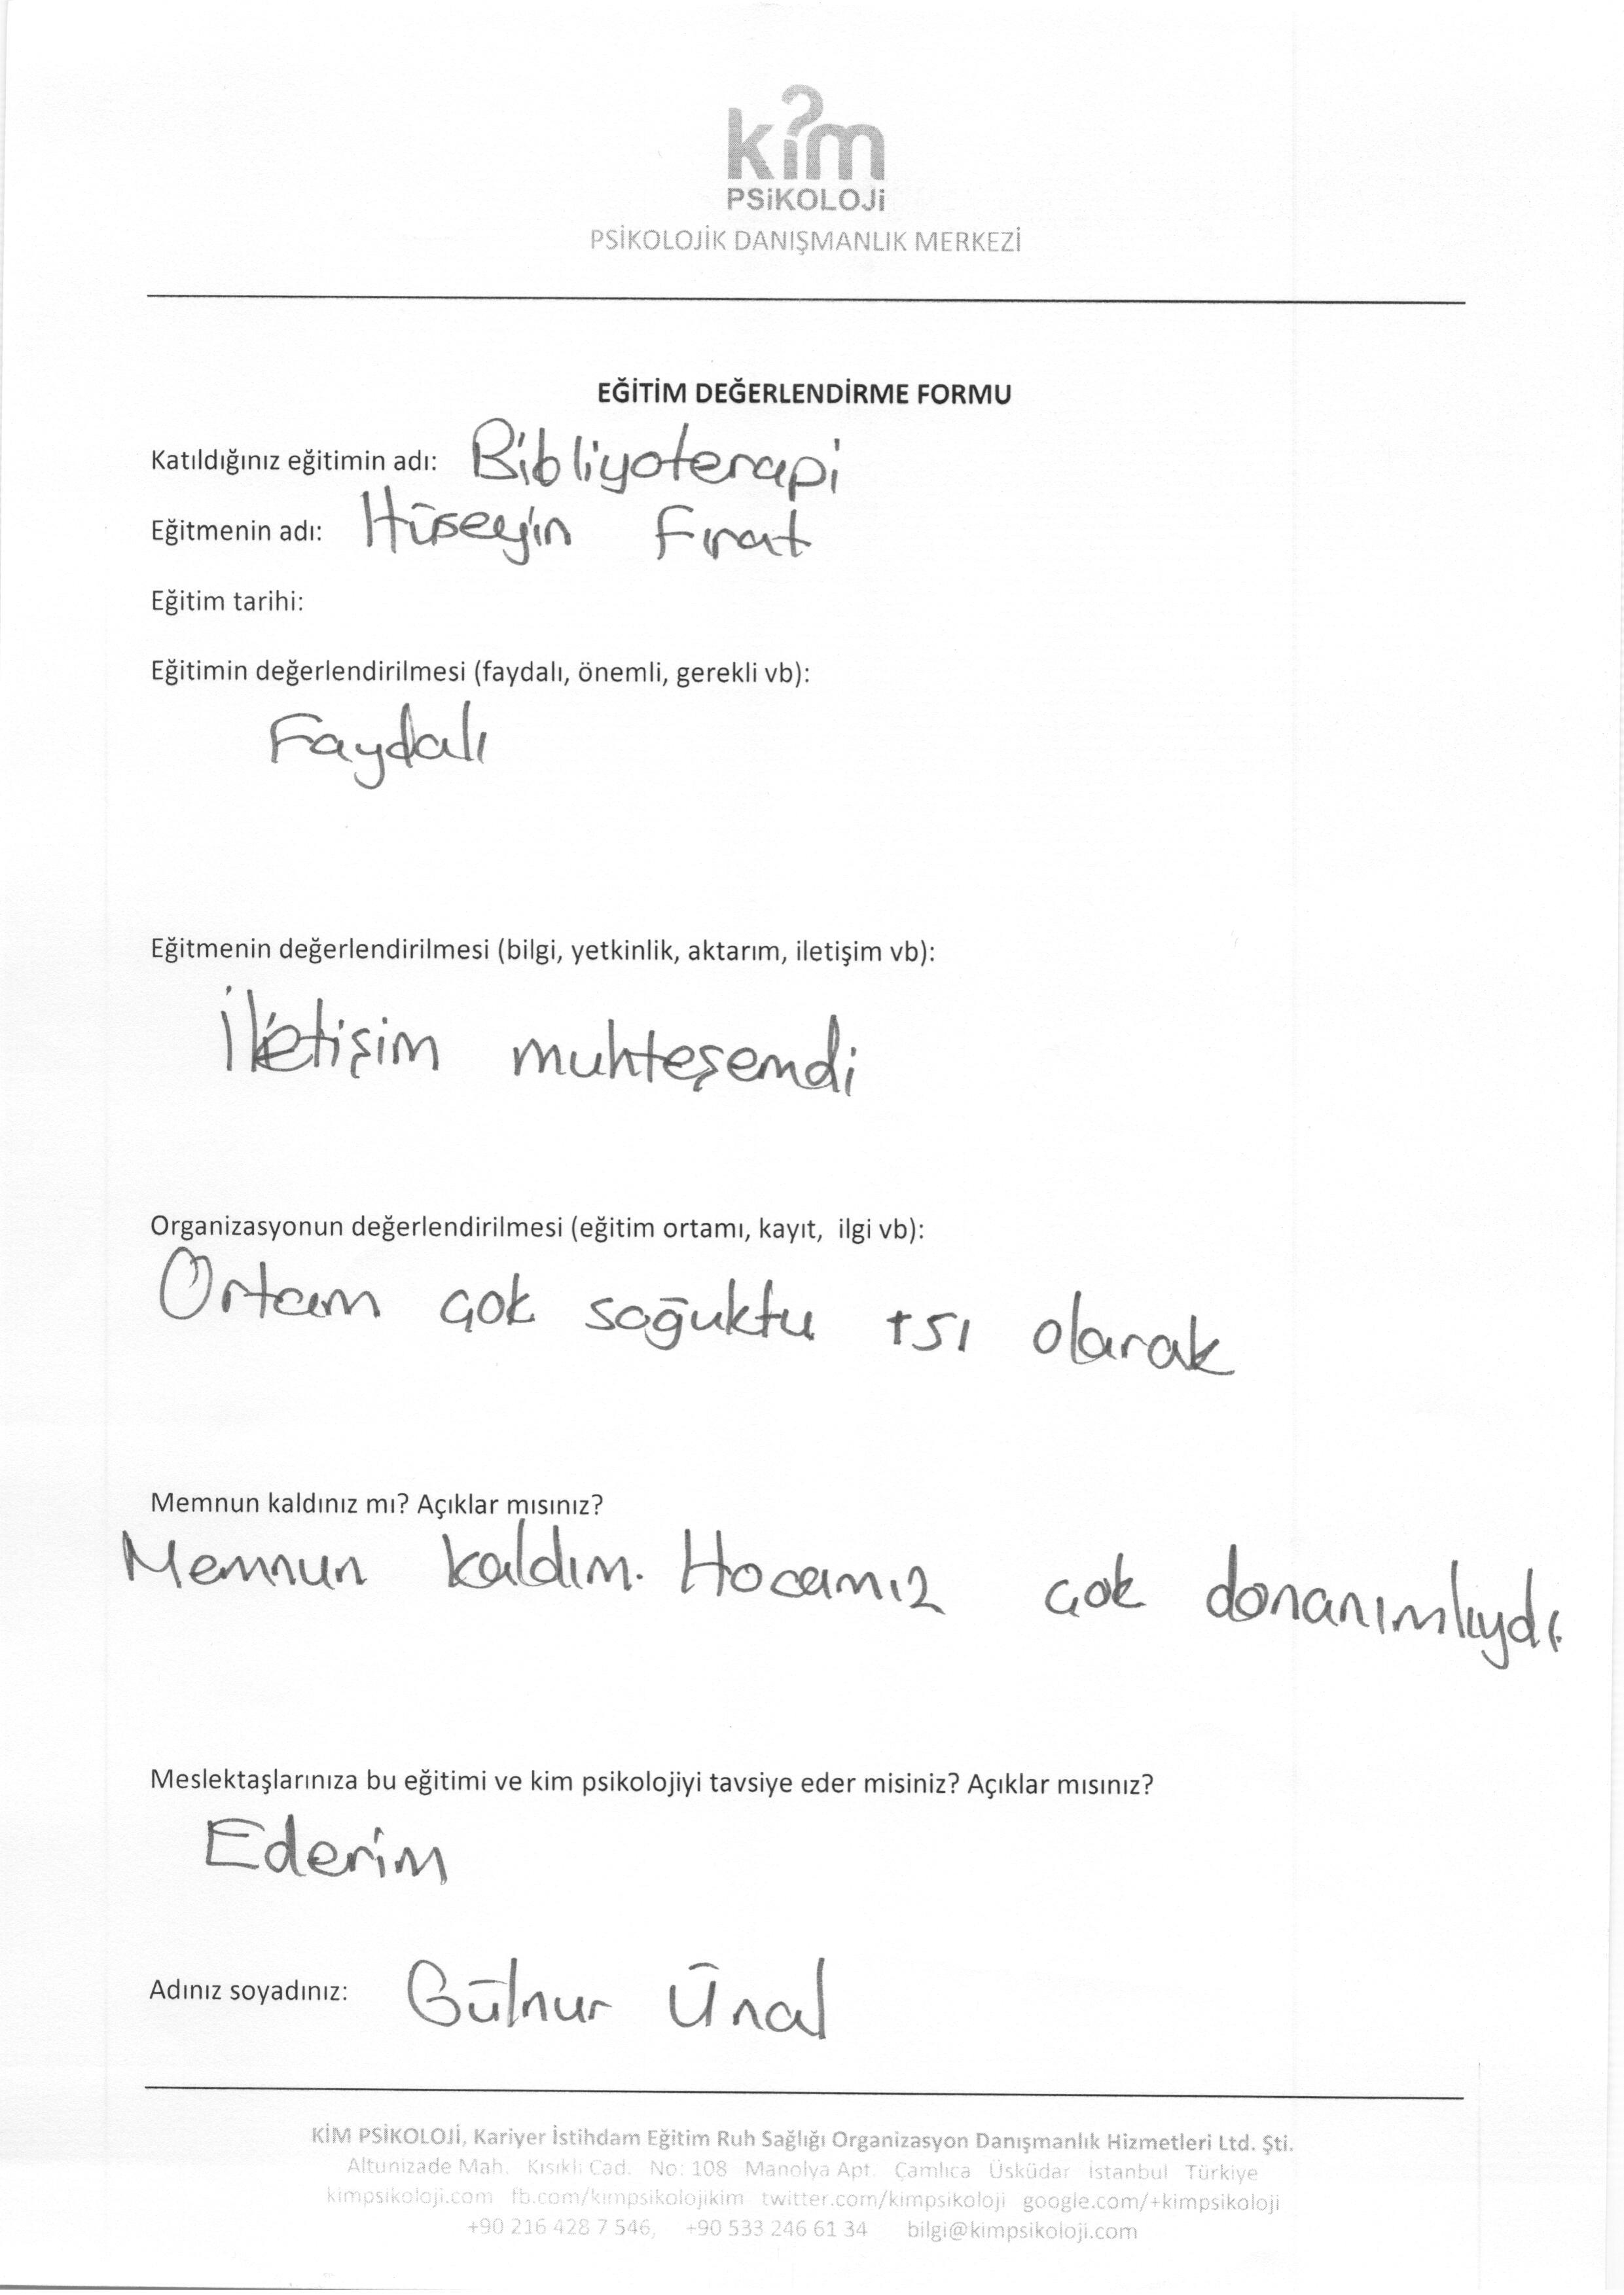 kim
PSiKOLOJi
PSİKOLOJİK DANIŞMANLIK MERKEZİ
EĞİTİM DEĞERLENDİRME FORMU
Katıldığınız eğitimin adı: Bibliyoterapi
Eğitmenin adı: Hüseyin Fırat
Eğitim tarihi:
Eğitimin değerlendirilmesi (faydalı, önemli, gerekli vb):
Faydalı
Eğitmenin değerlendirilmesi (bilgi, yetkinlik, aktarım, iletişim vb):
İletişim muhteşemdi
Organizasyonun değerlendirilmesi (eğitim ortamı, kayıt, ilgi vb):
Ortam çok soğuktu ısı olarak
Memnun kaldınız mı? Açıklar mısınız?
Memnun kaldım. Hocamız çok donanımlıydı.
Meslektaşlarınıza bu eğitimi ve kim psikolojiyi tavsiye eder misiniz? Açıklar mısınız?
Ederim
Adınız soyadınız: Gülnur Ünal
KİM PSİKOLOJİ, Kariyer İstihdam Eğitim Ruh Sağlığı Organizasyon Danışmanlık Hizmetleri Ltd. Şti.
Altunizade Mah. Kısıklı Cad. No: 108 Manolya Apt. Çamlıca Üsküdar İstanbul Türkiye
kimpsikoloji.com fb.com/kimpsikolojikim twitter.com/kimpsikoloji google.com/+kimpsikoloji
+90 216 428 7 546, +90 533 246 61 34 bilgi@kimpsikoloji.com